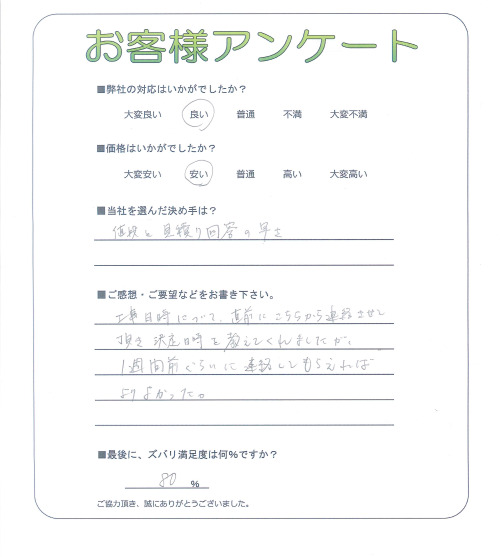 お客様アンケート
■弊社の対応はいかがでしたか？
大変良い 良い 普通 不満 大変不満
■価格はいかがでしたか？
大変安い 安い 普通 高い 大変高い
■当社を選んだ決め手は？
値段と見積り回答の早さ
■ご感想・ご要望などをお書き下さい。
工事日時について、直前にこちらから連絡させて
頂き決定日時を教えてくれましたが、
1週間前ぐらいに連絡してもらえれば
よりよかった。
■最後に、ズバリ満足度は何%ですか？
80 %
ご協力頂き、誠にありがとうございました。